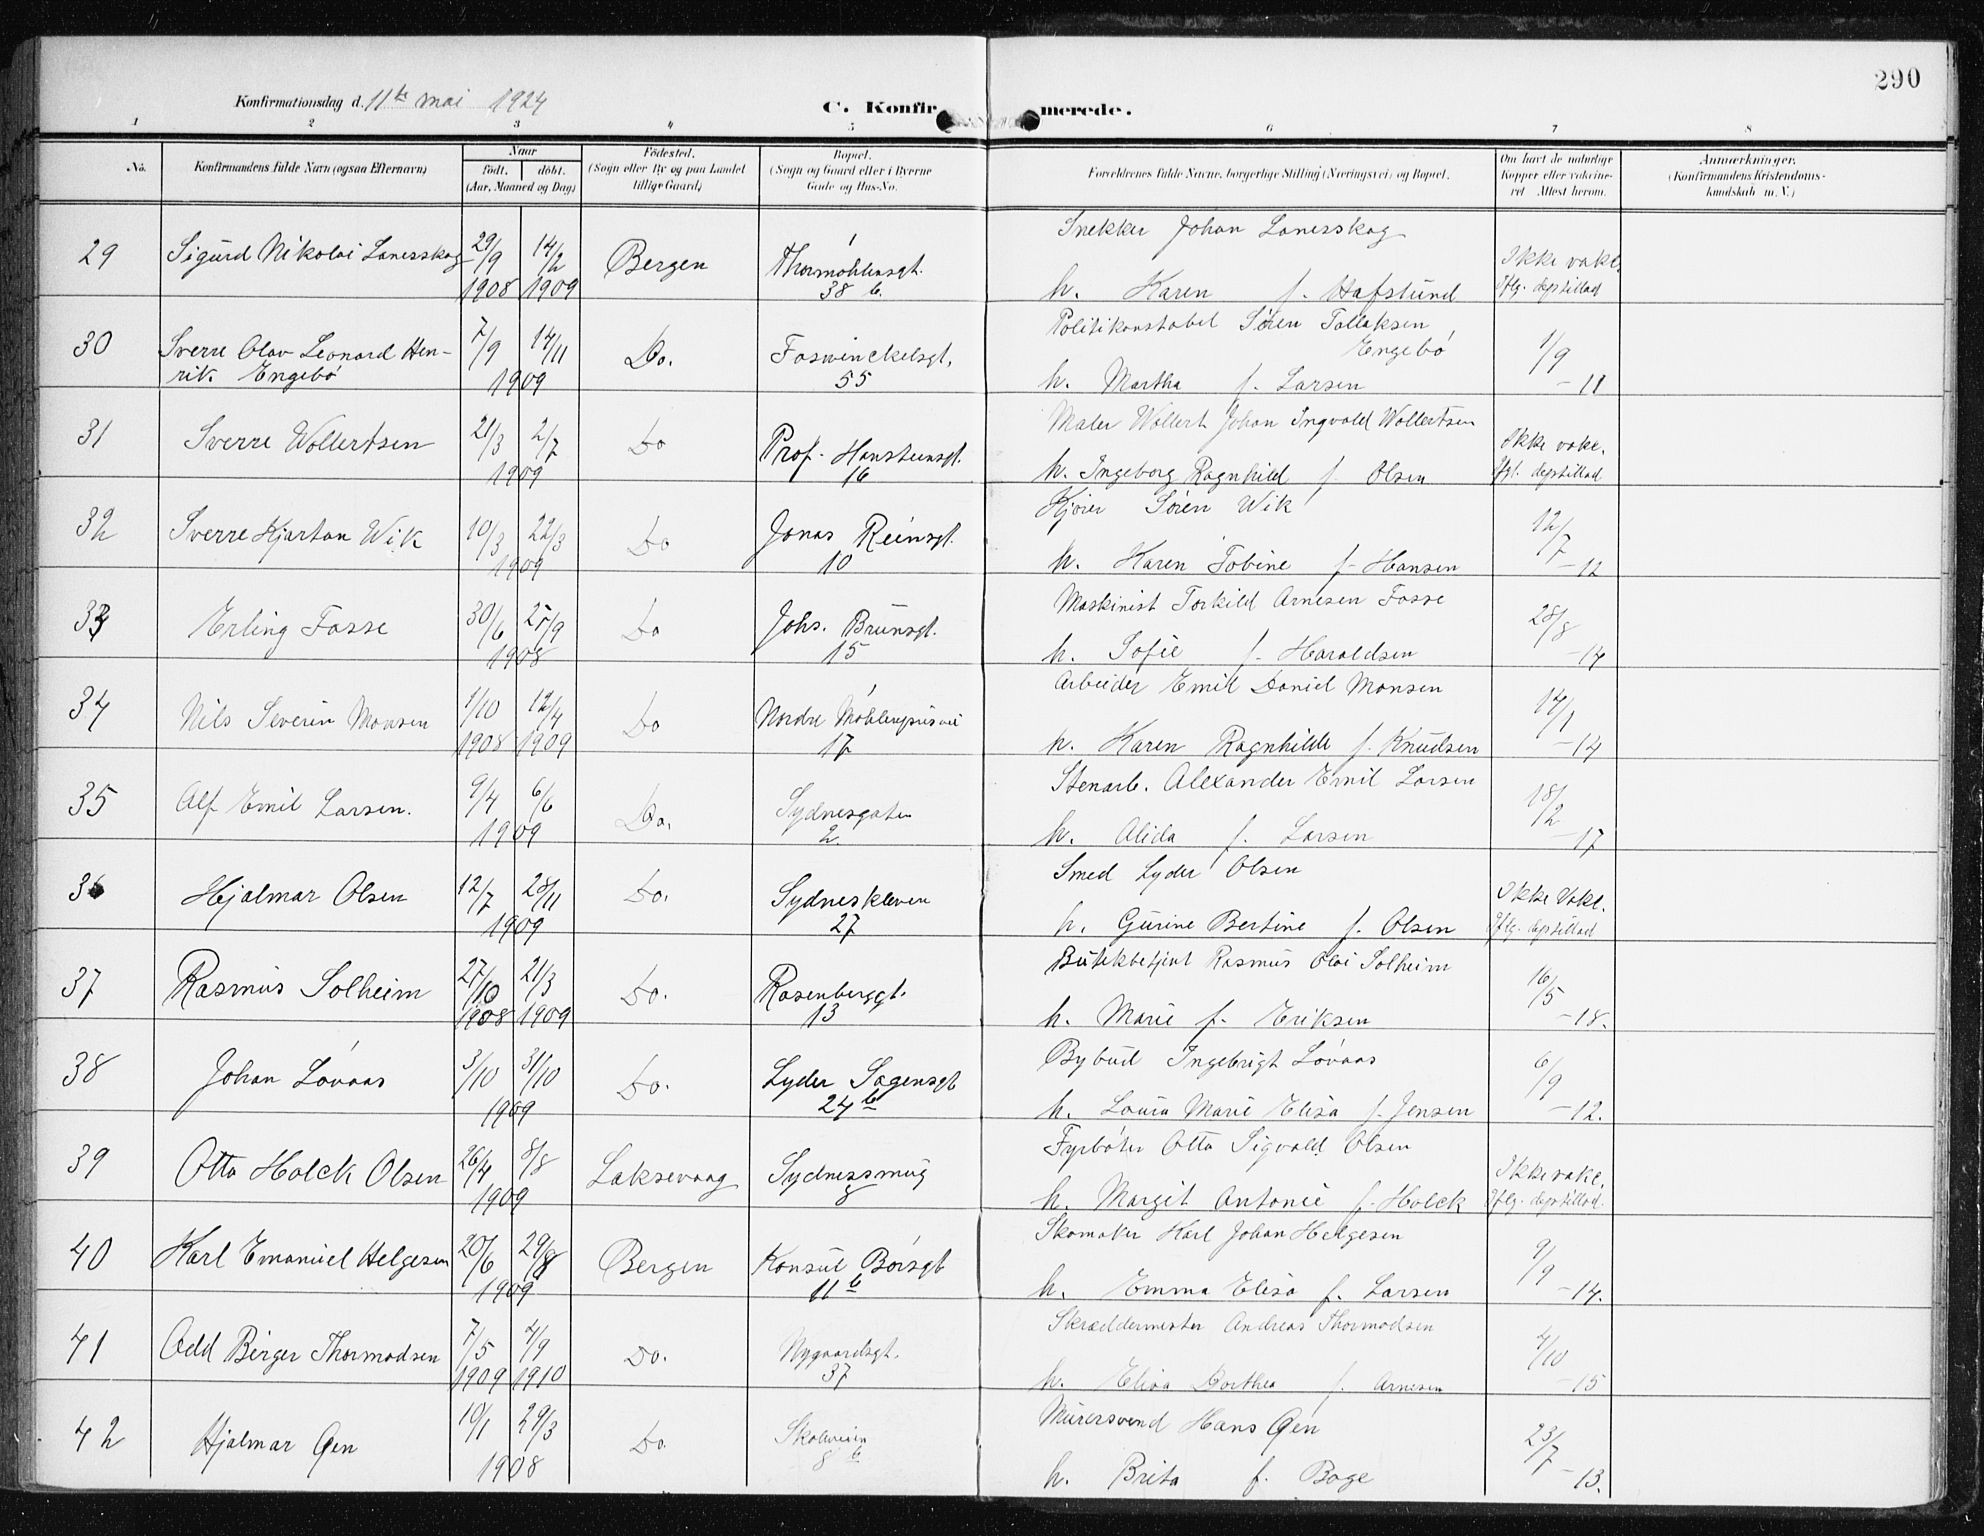 290
Konfirmationsdag d. 11te mai 1924
C. Konfirmerede.
1 2 3 4 5 6 7 8
No.
Konfirmandens fulde Navn (ogsaa Efternavn)
Naar
født. døbt.
(Aar, Maaned og Dag)
Fødested.
(Sogn eller By og paa Landet
tillige Gaard)
Bopæl.
(Sogn og Gaard eller i Byerne
Gade og Hus-No.
Forældrenes fulde Navne, borgerlige Stilling (Næringsvei) og Bopæl.
Om havt de naturlige
Kopper eller vakcine-
ret Attest herom.
Anmærkninger.
(Konfirmandens Kristendoms-
kundskab m. V.)
29 Sigurd Nikolai Lanesskog 29/9 1908 14/2 1909 Bergen Thormøhlensgt. 38 b.
Snekker Johan Lanesskog
h. Karen f. Hafslund
Ikke vakc. Iflg. dep. tillad
30 Sverre Olav Leonard Hen-
rik Engebø 7/9 14/11 1909 Do. Foswinckelsgt. 55
Politikonstabel Søren Tollaksen
Engebø
h. Martha f. Larsen
1/9 - 11
31 Sverre Wollertsen 21/3 2/7 1909 Do Prof. Hansteensgt. 16
Maler Wollert Johan Ingvald Wollertsen
h. Ingeborg Ragnhild f. Olsen
Ikke vakc. Ifgl. dep tillad
32 Sverre Kjartan Wik 10/3 22/3 1909 Do Jonas Reinsgt. 10
Kjører Søren Wik
h. Karen Tobine f. Hansen
12/7 - 12
33 Erling Fosse 30/6 25/9 1908 Do Johs. Brunsgt. 15
Maskinist Torkild Arnesen Fosse
h. Sofie f. Haraldsen
28/8 - 14
34 Nils Severin Monsen 1/10 1908 12/4 1909 Do Nordre Møhlenprisvei 17
Arbeider Emil Daniel Monsen
h. Karen Ragnhilde f. Knudsen
14/1 - 14
35 Alf Emil Larsen. 9/4 6/6 1909 Do. Sydnesgaten 2
Stenarb. Alexander Emil Larsen
h. Alida f. Larsen
18/2 - 17
36 Hjalmar Olsen 12/7 28/11 1909 Do. Sydneskleven 27
Smed Lyder Olsen
h. Gurine Bertine f. Olsen
Ikke Vakc. Iflg. dep tillad
37 Rasmus Solheim 27/10 1908 21/3 1909 Do. Rosenberggt. 13
Butikbetjent Rasmus Olai Solheim
h. Marie f. Eriksen
16/5 - 18.
38 Johan Løvaas 3/10 31/10 1909 Do. Lyder Sagensgt 24 b
Bybud Ingebrigt Løvaas
h. Laura Marie Elisa f. Jensen
6/9 - 12.
39 Otto Holck Olsen 26/4 8/8 1909 Laksevaag Sydnessmug 8
Fyrbøter Otto Sigvald Olsen
h. Margit Antonie f. Holck
Ikke vakc. Iflg. dep tillad.
40 Karl Emanuel Helgesen 20/6 29/8 1909 Bergen Konsul Børsgt 11 b
Skomaker Karl Johan Helgesen
h. Emma Elisa f. Larsen
9/9 - 14.
41 Odd Birger Thormodsen 7/5 1909 4/9 1910 Do. Nygaardsgt. 37
Skræddermester Andreas Thormodsen
h. Elisa Dorthea f. Arnesen
4/10 - 15
42 Hjalmar Øen 10/1 29/3 1908 Do. Skoleveien 8 b
Murersvend Hans Øen
h. Brita f. Boge
23/7 - 13.